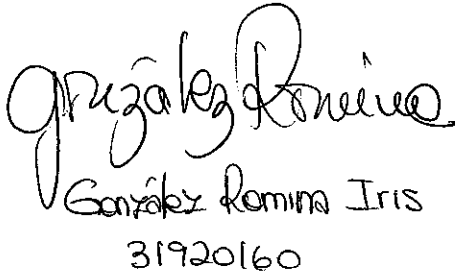 González Romina
González Romina Iris
31920160